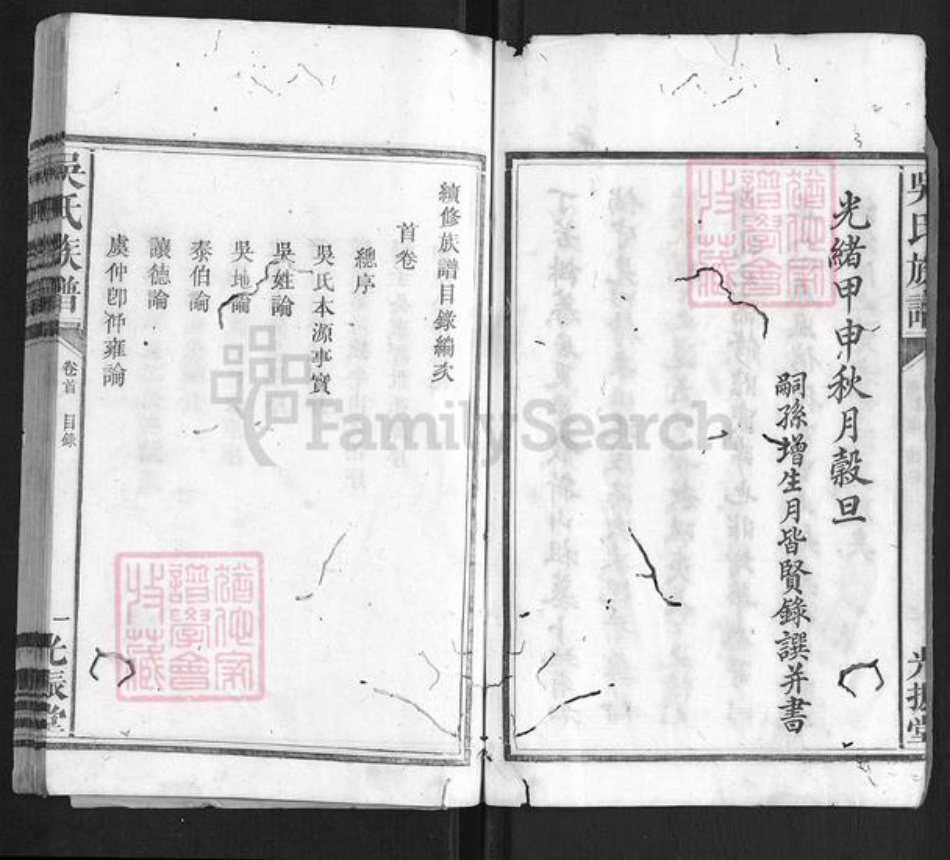 吳氏族譜
光振堂
光緒甲申秋月穀旦
嗣孫增生月皆賢錄譔并書
續修族譜目錄編次
首卷
總序
吳氏本源事實
吳姓論
吳地論
泰伯論
讓德論
虞仲卽仲雍論
吳氏族譜
卷首 目錄
一
光振堂
譜學會
收藏
FamilySearch